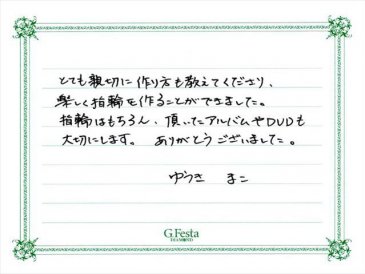 とても親切に作り方も教えてくださり、
楽しく指輪を作ることができました。
指輪はもちろん、頂いたアルバムやDVDも
大切にします。 ありがとうございました。
ゆうき まこ
G.Festa
DIAMOND